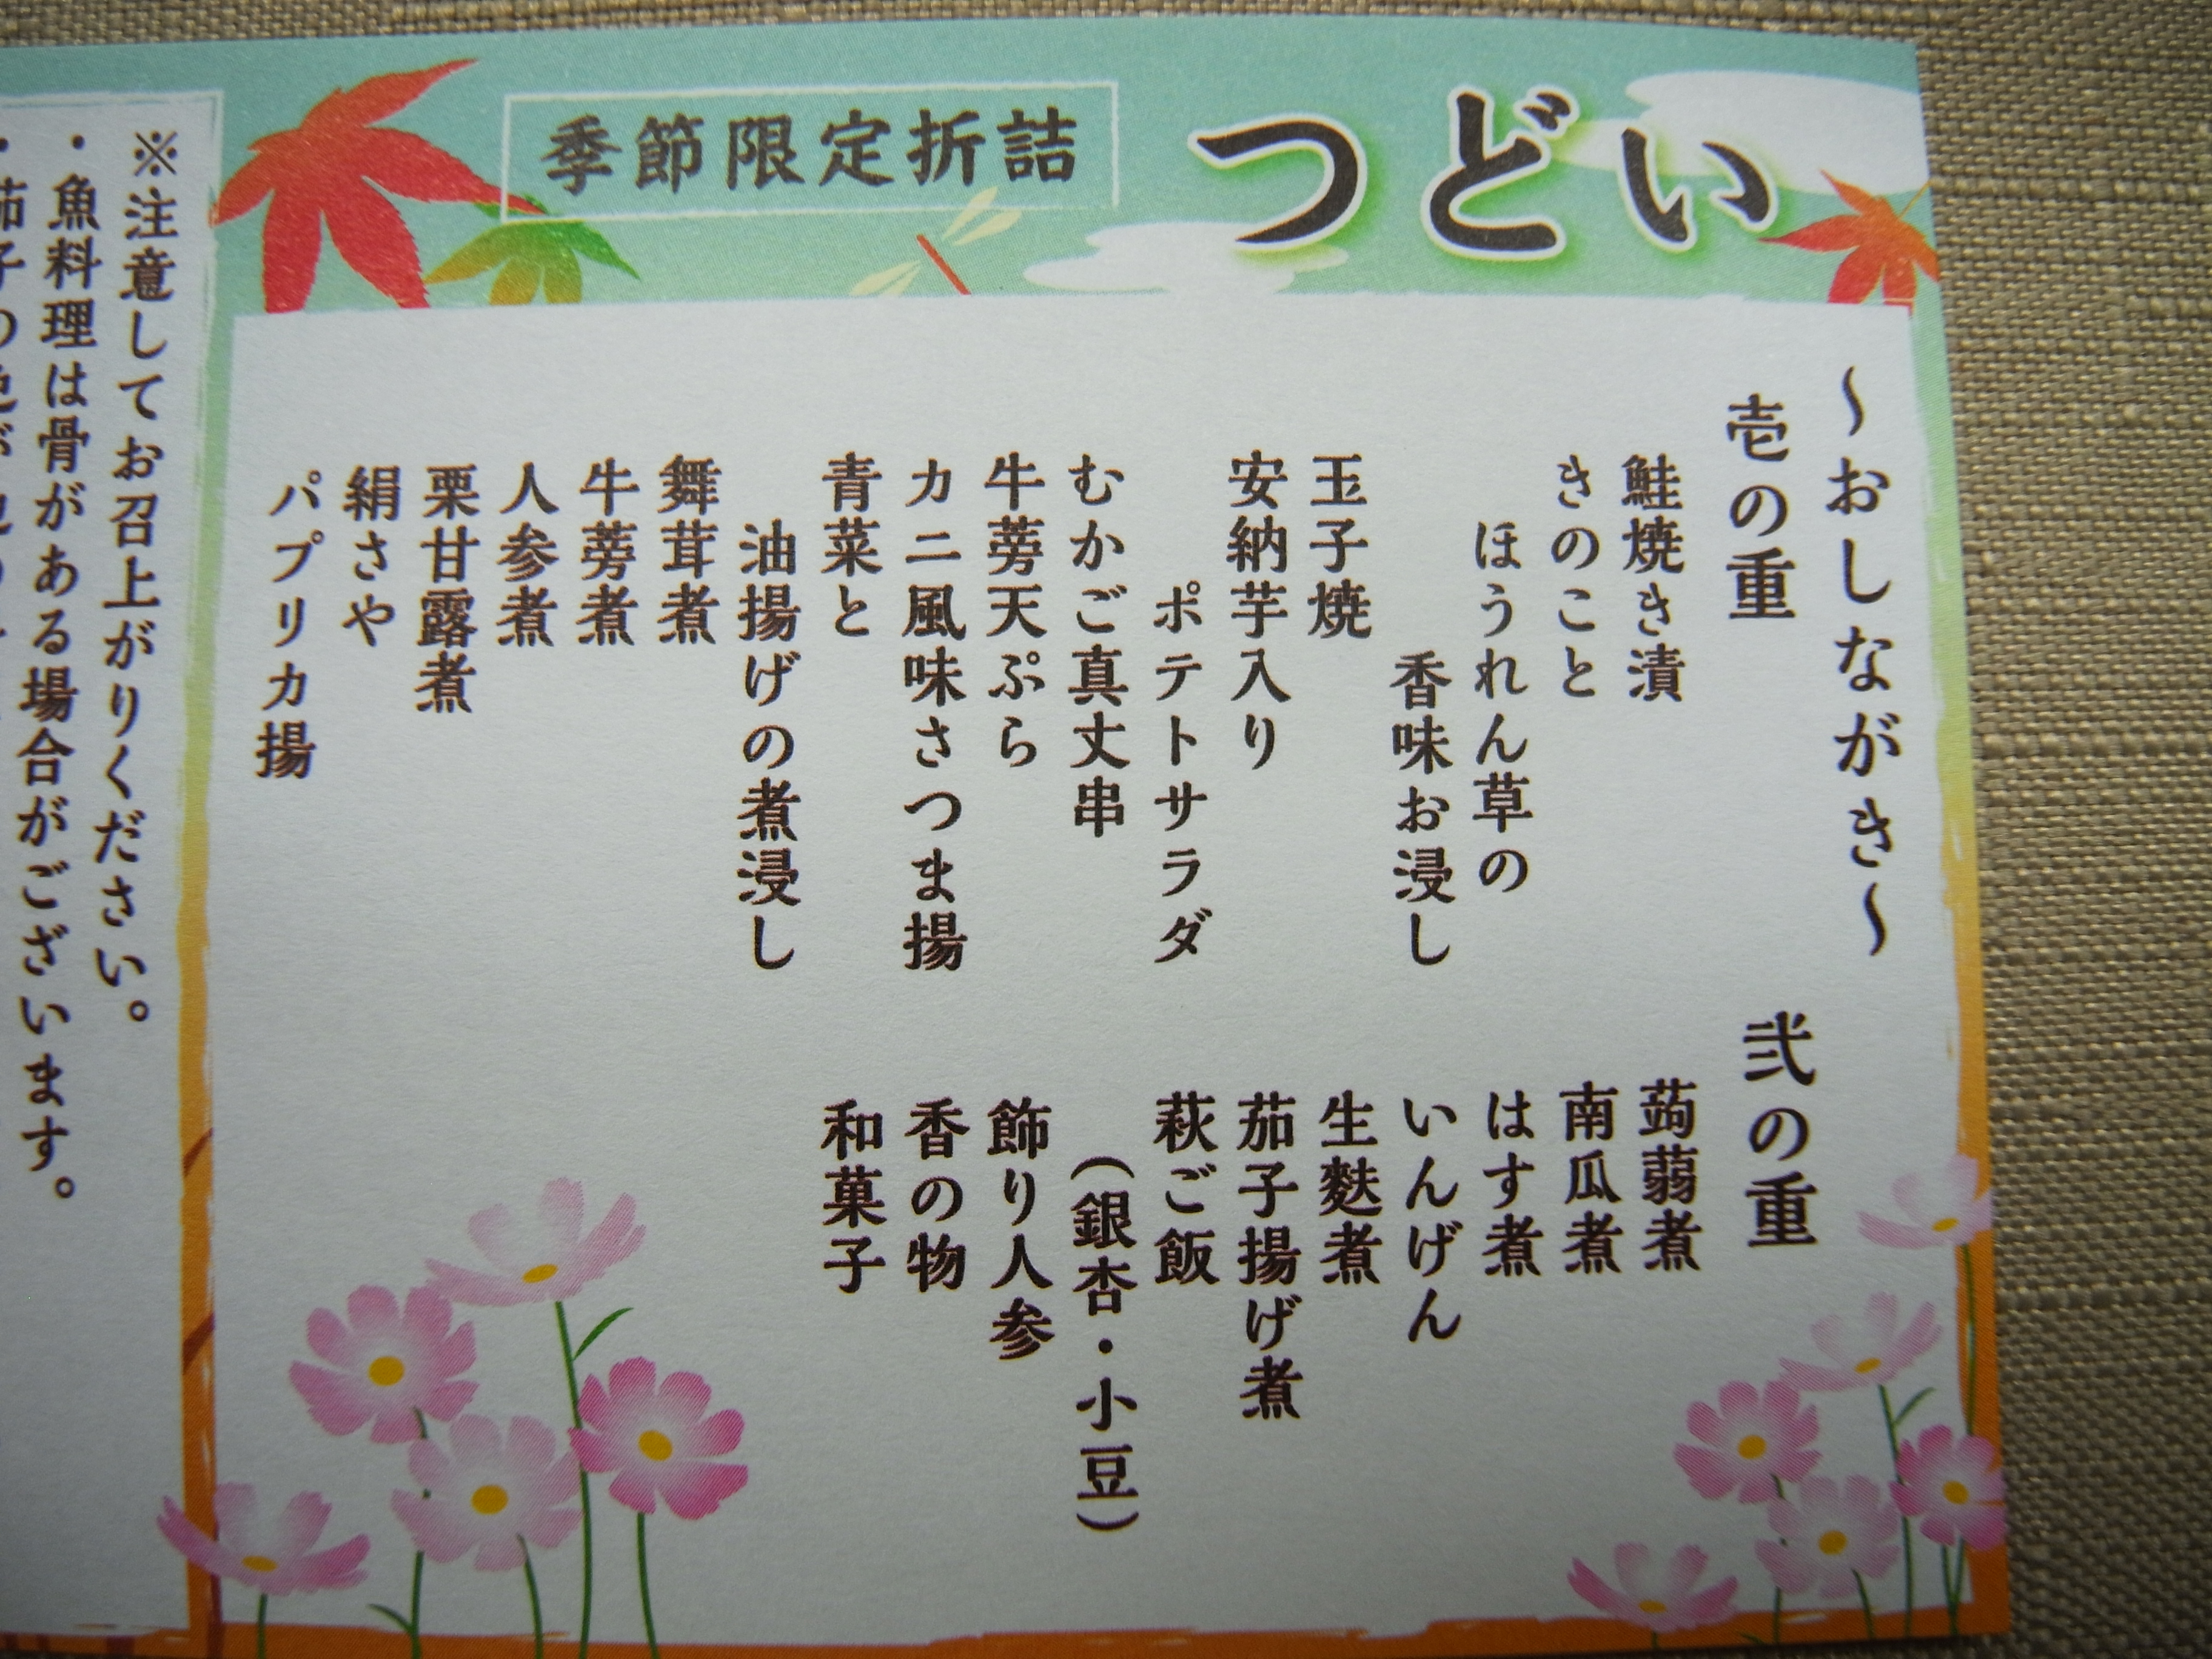 つどい
季節限定折詰
～おしながき～
壱の重
鮭焼き漬
きのこと
ほうれん草の
香味お浸し
玉子焼
安納芋入り
ポテトサラダ
むかご真丈串
牛蒡天ぷら
カニ風味さつま揚
青菜と
油揚げの煮浸し
舞茸煮
牛蒡煮
人参煮
栗甘露煮
絹さや
パプリカ揚
弐の重
蒟蒻煮
南瓜煮
はす煮
いんげん
生麩煮
茄子揚げ煮
萩ご飯
（銀杏・小豆）
飾り人参
香の物
和菓子
※注意してお召上がりください。
・魚料理は骨がある場合がございます。